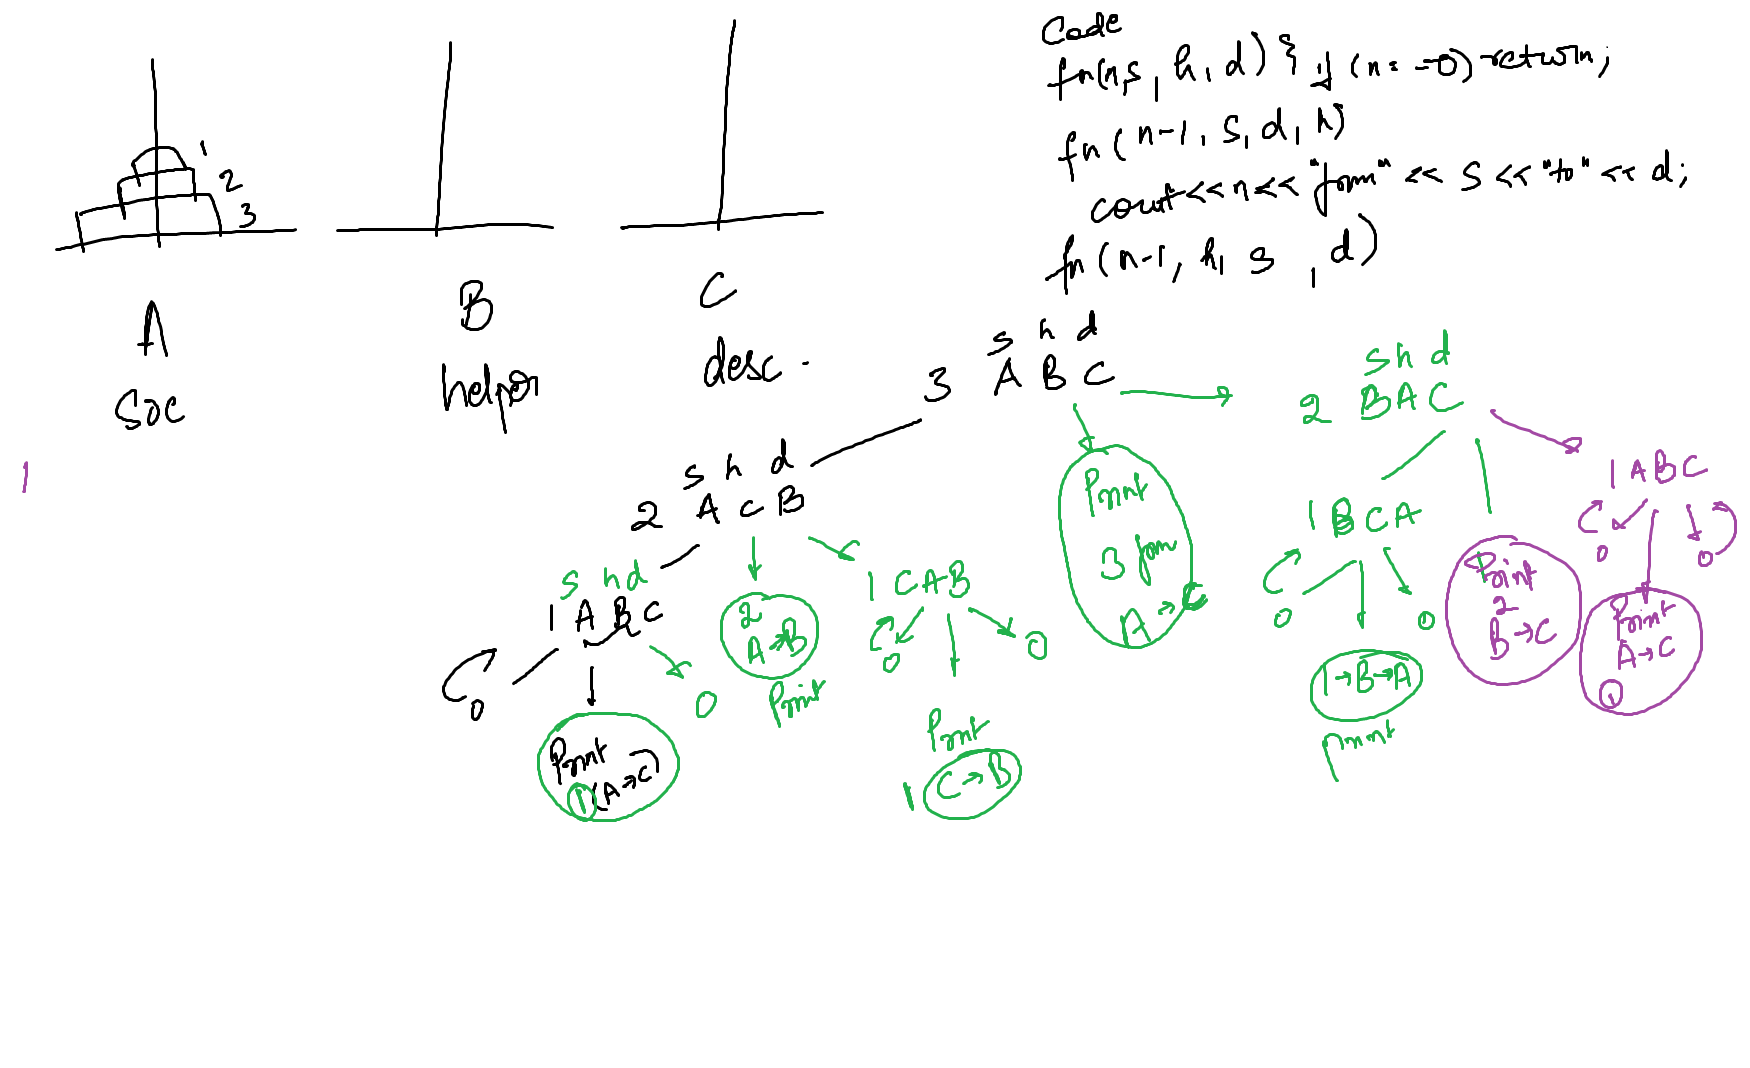 1
2
3
A
B
C
soc
helper
desc.
1
Code
fn(n,s, h, d) { if (n==0) return;
fn(n-1, s, d, h)
cout<<n<<"from"<<s<<"to"<<d;
fn(n-1, h, s, d)
s h d
3 A B C
s h d
2 A C B
s h d
1 A B C
0
Print
1 (A→C)
0
2
A→B
Print
1 C A B
0
0
Print
1 C→B
Print
3 from
A→C
s h d
2 B A C
1 B C A
0
0
1→B→A
print
Print
2
B→C
1 A B C
0
0
Print
A→C
1